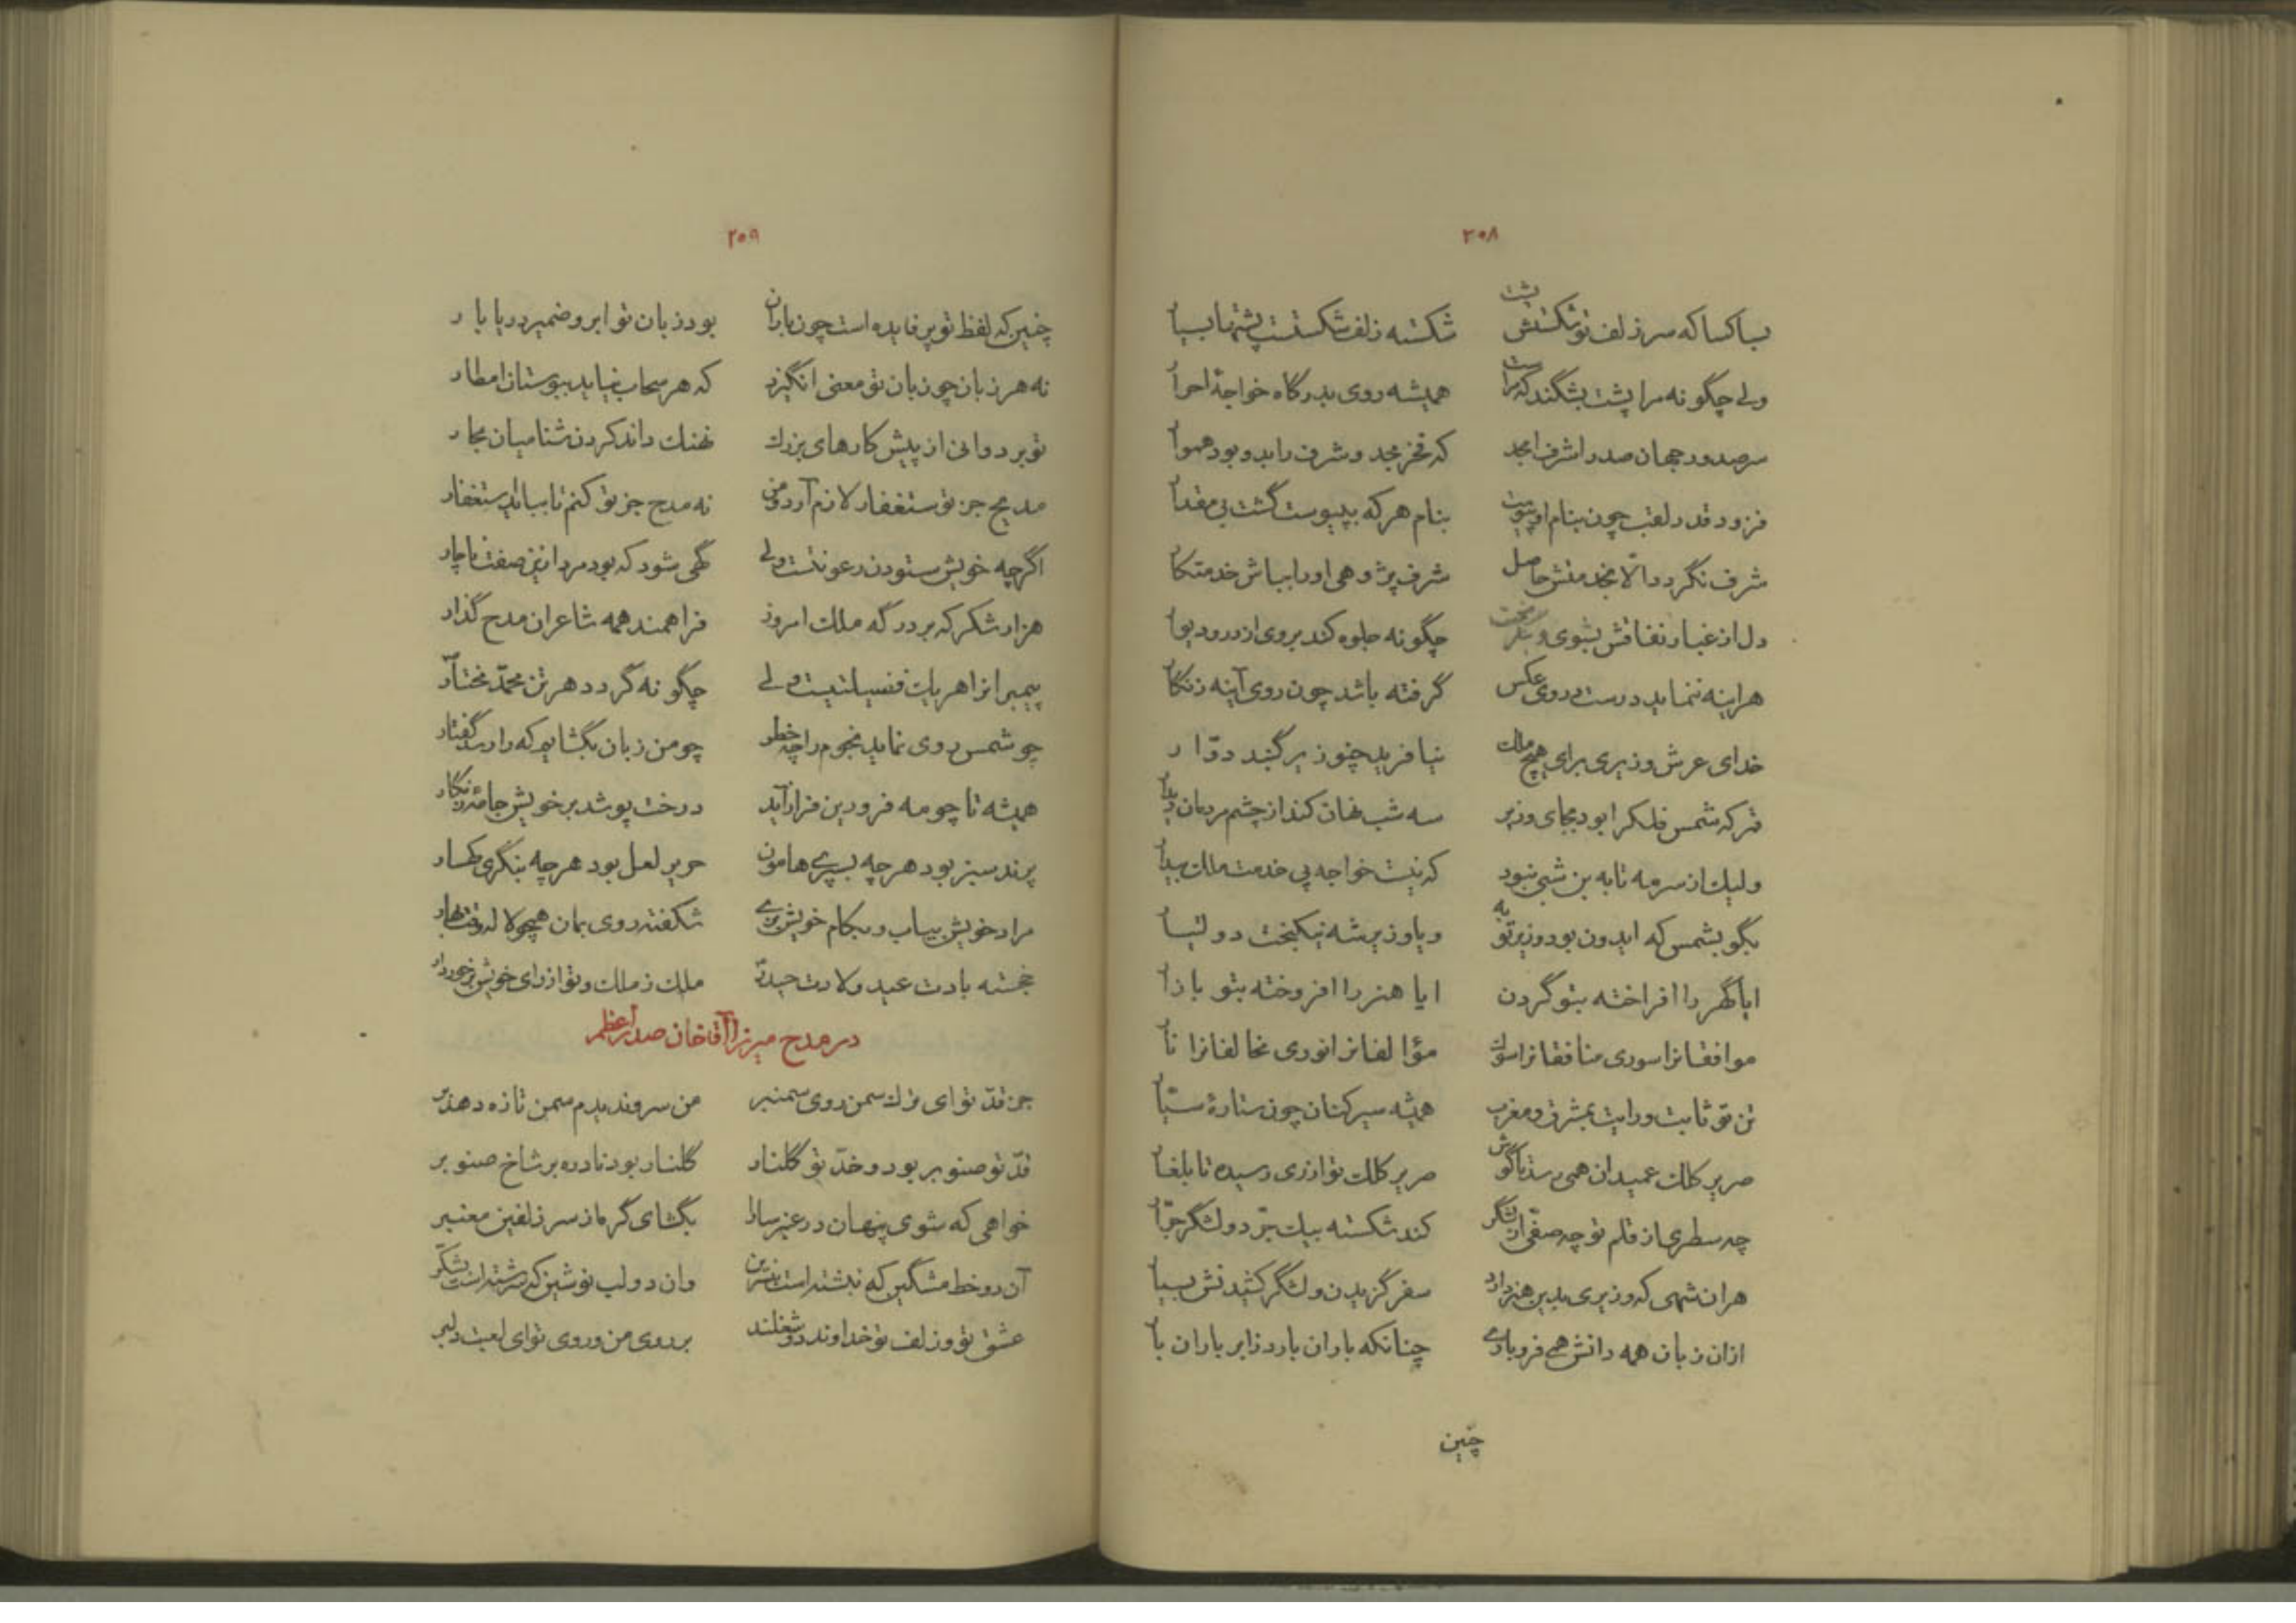 ۲۰۸
بساکسا که سر زلف تو شکستش پشت شکسته زلف شکستست پشتها بسیار
ولی چگونه مرا پشت بشکند که مراست همیشه روی بدرگاه خواجهٔ احرار
سر صدور جهان صدر اشرف امجد که فخر مجد و شرف را بدو بود هموار
فزود قدر لقب چون بنام او پیوست بنام هر که بپیوست گشت بی مقدار
شرف نگردد الّا بخدمتش حاصل شرف پژوهی او را بباش خدمتکار
دل از غبار نفاقش بشوی و بخت چگونه جلوه کند بروی از در و دیوار
هراینه ننماید درست در وی عکس گرفته باشد چون روی آینه زنگار
خدای عرش وزیری برای هیچ ملک نیافرید چنو زیر گنبد دوّار
قمر که شمس فلکرا بود بجای وزیر سه شب نهان کند از چشم مردمان دیدار
ولیک از سر مه تا به بن شبی نبود که نیست خواجه پی خدمت ملک بیدار
بگو بشمس که ایدون بود وزیر تو به و یا وزیر شه نیکبخت دولتیار
ایا گهر را افراخته بتو گردن ایا هنر را افروخته بتو بازار
موافقانرا سوری منافقانرا سوک مؤالفانرا نوری مخالفانرا نار
تن تو ثابت و رایت بمشرق و مغرب همیشه سیرکنان چون ستارهٔ سیّار
صریر کلک عمیدان همی رسد تا گوش صریر کلک تو از ری رسیده تا بلغار
چه سطری از قلم تو چه صفّی از لشکر کند شکسته بیک جرّ دو لشگر جرّار
هران شهی که وزیری بدین هنر دارد سفر گزیدن و لشگر کشیدنش بسیار
ازان زبان همه دانش همی فرو باری چنانکه باران بارد ز ابر باران بار
چنین
۲۰۹
چنین که لفظ تو پر فایده است چون باران بود زبان تو ابر و ضمیر دریا بار
نه هر زبان چو زبان تو معنی انگیزد که هر سحاب نیاید ببوستان امطار
تو بر دوانی از پیش کارهای بزرگ نهنک داند کردن شنا میان بحار
مدیح جز تو ستغفار لازم آرد و من نه مدح جز تو کنم تا ببایدستغفار
اگرچه خویش ستودن رعونتست ولی گهی شود که بود مرد ازین صفت ناچار
هزار شکر که بر درگه ملک امروز فراهمند همه شاعران مدح گذار
پیمبرانرا هر یک فضیلتیست ولی چگونه گردد هر تن محمّد مختار
چو شمس روی نماید نجوم را چه خطر چو من زبان بگشایم که را رسد گفتار
همیشه تا چو مه فرودین فراز آید درخت پوشد بر خویش جامهٔ زنگار
پرند سبز بود هر چه بسپری هامون حریر لعل بود هر چه بنگری کهسار
مراد خویش بیاب و بکام خویش بزی شکفته روی بمان همچو لاله وقت بهار
خجسته بادت عید ولادت حیدر ملک ز ملک و تو از رای خویش برخوردار
در مدح میرزا آقا خان صدر اعظم
جز قدّ تو ای ترک سمن روی سمنبر من سرو ندیدم سمن تازه دهد بر
قدّ تو صنوبر بود و خدّ تو گلنار گلنار بود نادره بر شاخ صنوبر
خواهی که شوی پنهان در عنبر سارا بگشای گره از سر زلفین معنبر
آن دو خط مشگین که نبشته است بنسرین وان دو لب نوشین که سرشته است بشکّر
عشق تو و زلف تو خداوند دو شغلند بر روی من و روی تو ای لعبت دلبر